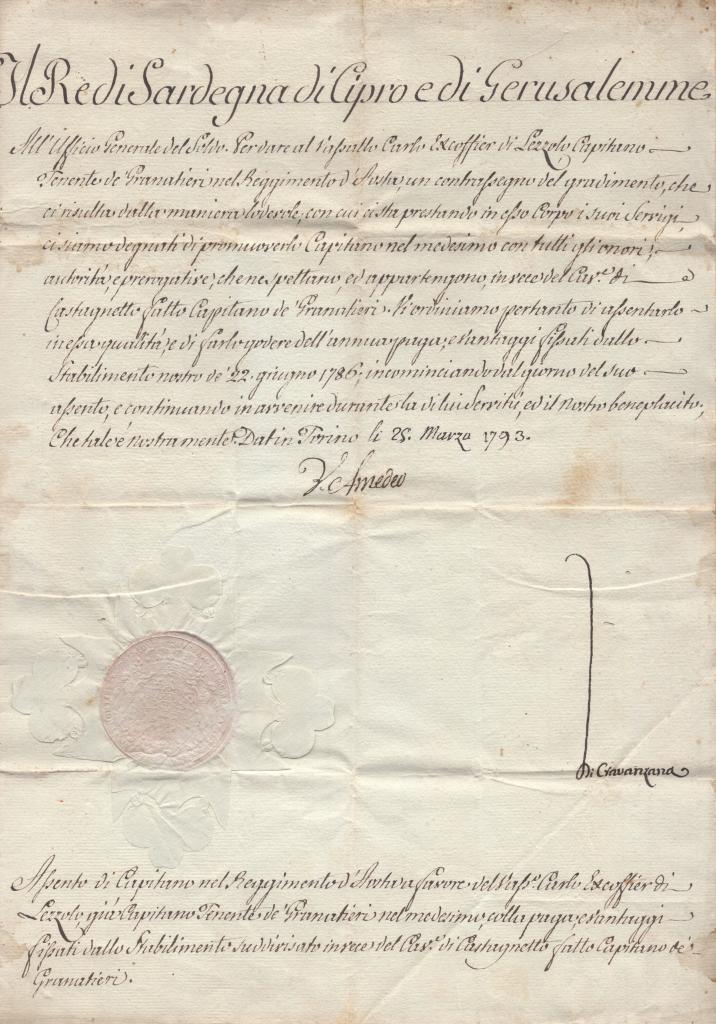 Il Re di Sardegna di Cipro e di Gerusalemme
All'Ufficio Generale del Soldo. Per dare al Vassallo Carlo Excoffier di Lezzolo Capitano
Tenente de' Granatieri nel Reggimento d'Aosta, un contrassegno del gradimento, che
ci risulta dalla maniera lodevole, con cui ci sta prestando in esso Corpo i suoi Servigi,
ci siamo degnati di promuoverlo Capitano nel medesimo con tutti gli onori,
autorità, e prerogative, che ne spettano, ed appartengono, in vece del Cav.e di
Castagnetto fatto Capitano de' Granatieri. Vi ordiniamo pertanto di assentarlo
in essa qualità, e di farlo godere dell'annua paga, e vantaggi fissati dallo
Stabilimento nostro de' 22. giugno 1786, incominciando dal giorno del suo
assento, e continuando in avvenire durante la di lui Servitù, ed il nostro beneplacito,
Che tale è nostra mente. Dat in Torino li 25. Marzo 1793.
V. Amedeo
Di Cravanzana
Assento di Capitano nel Reggimento d'Aosta a favore del Vass.o Carlo Excoffier di
Lezzolo già Capitano Tenente de' Granatieri nel medesimo, colla paga, e vantaggi
fissati dallo Stabilimento suddivisato in vece del Cav.e di Castagnetto fatto Capitano de'
Granatieri.